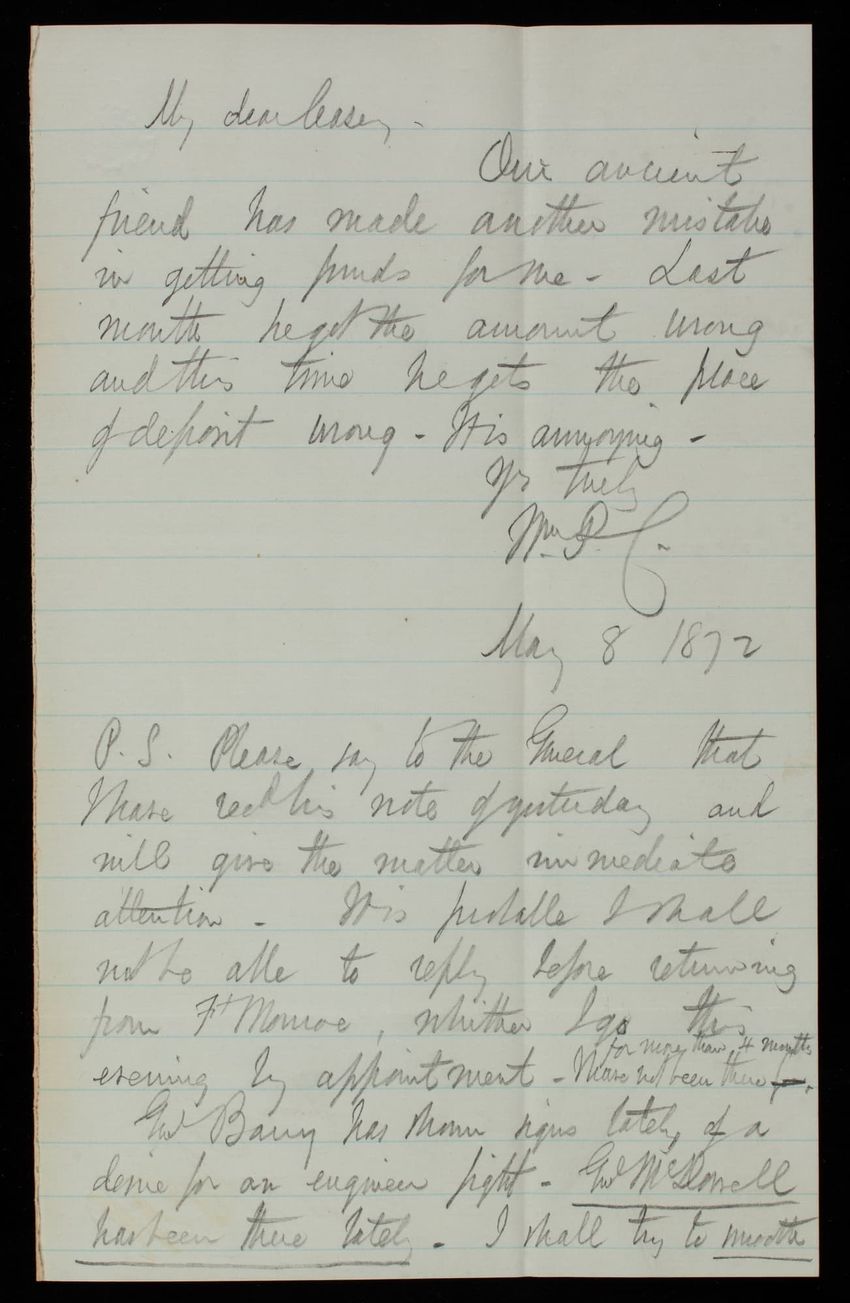 My dear Casey -
Our ancient
friend has made another mistake
in getting funds for me - Last
month he got the amount wrong
and this time he gets the place
of deposit wrong - It is annoying -
Yrs truly
Wm. P. C.
May 8 1872
P. S. Please say to the General that
I have recd his note of yesterday and
will give the matter immediate
attention - It is probable I shall
not be able to reply before returning
from Ft Monroe, whither I go this
for more than 4 months
evening by appointment - I have not been there for.
Genl Barry has shown signs lately of a
desire for an engineer fight - Genl McDowell
has been there lately. - I shall try to smooth